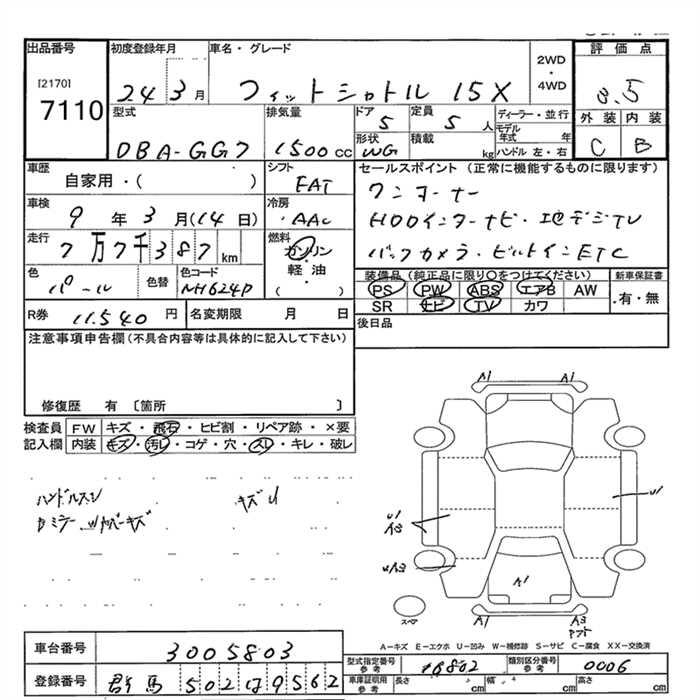 出品番号 初度登録年月 車名・グレード 評価点
[2170]
7110
24 3月 フィットシャトル 15X 2WD・4WD 3.5
型式 排気量 ドア 定員 ディーラー・並行 外装 内装
DBA-GG7 1500cc 5 5人 モデル年式 年 C B
形状 積載 ハンドル 左・右
WG kg
車歴 シフト セールスポイント (正常に機能するものに限ります)
自家用・( ) FAT ワンオーナー
車検 冷房
9年3月(14日) AAC HDDインターナビ・地デジTV
走行 燃料
7万7千387km ガソリン バックカメラ・ビルトインETC
色 色替 色コード 軽・油 装備品 (純正品に限り○をつけてください) 新車保証書
パール NH624P ( ) PS PW ABS エアB AW 有・無
SR ナビ TV カワ
R券 11,540円 名変期限 月 日 後日品
注意事項申告欄 (不具合内容等は具体的に記入して下さい)
修復歴 有 〔箇所 〕
検査員 FW キズ・飛石・ヒビ割・リペア跡・×要
記入欄 内装 キズ・汚レ・コゲ・穴・スレ・キレ・破レ
ハンドルスレ キズU
A1 A1
U1
U1
A1
A1 A3
スペアー
A-キズ E-エクボ U-凹み W-補修跡 S-サビ C-腐食 XX-交換済
車台番号 3005803
型式指定番号 参考 16802 類別区分番号 参考 0006
登録番号 群馬 502 は 9562
車庫証明用 参考 長さ cm 幅 cm 高さ cm